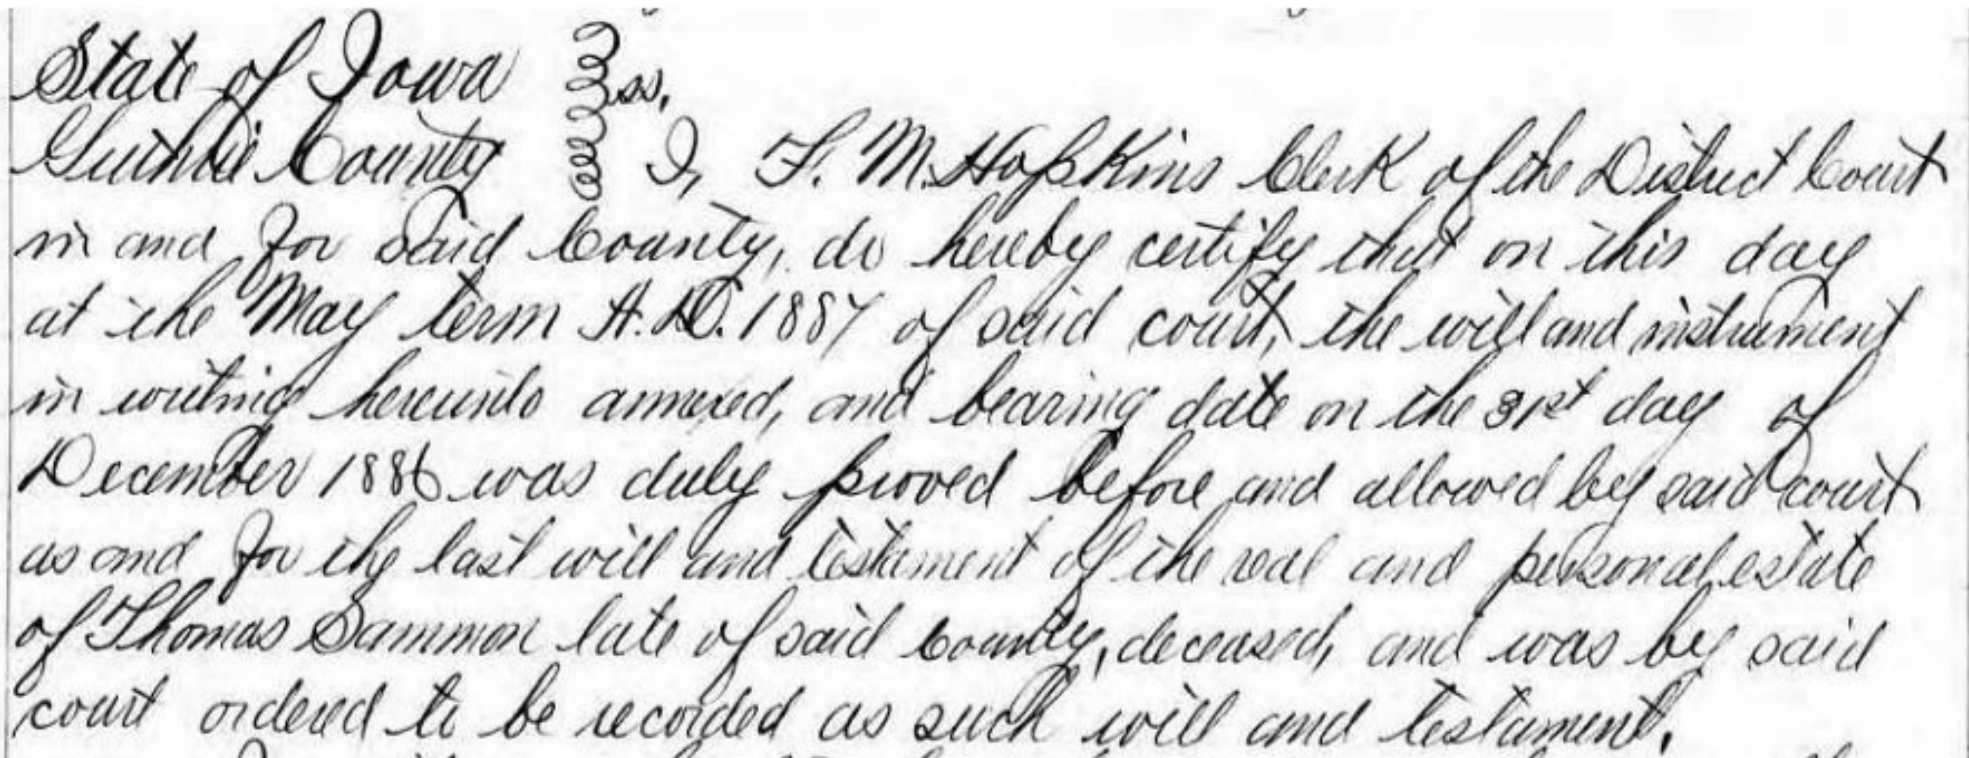 State of Iowa } ss.
Guthrie County } I, F. M. Hopkins Clerk of the District Court
in and for said County, do hereby certify that on this day
at the May term A.D. 1887 of said court, the will and instrument
in writing hereunto annexed, and bearing date on the 31st day of
December 1886 was duly proved before and allowed by said court
as and for the last will and testament of the real and personal estate
of Thomas Sammon late of said County, deceased, and was by said
court ordered to be recorded as such will and testament.